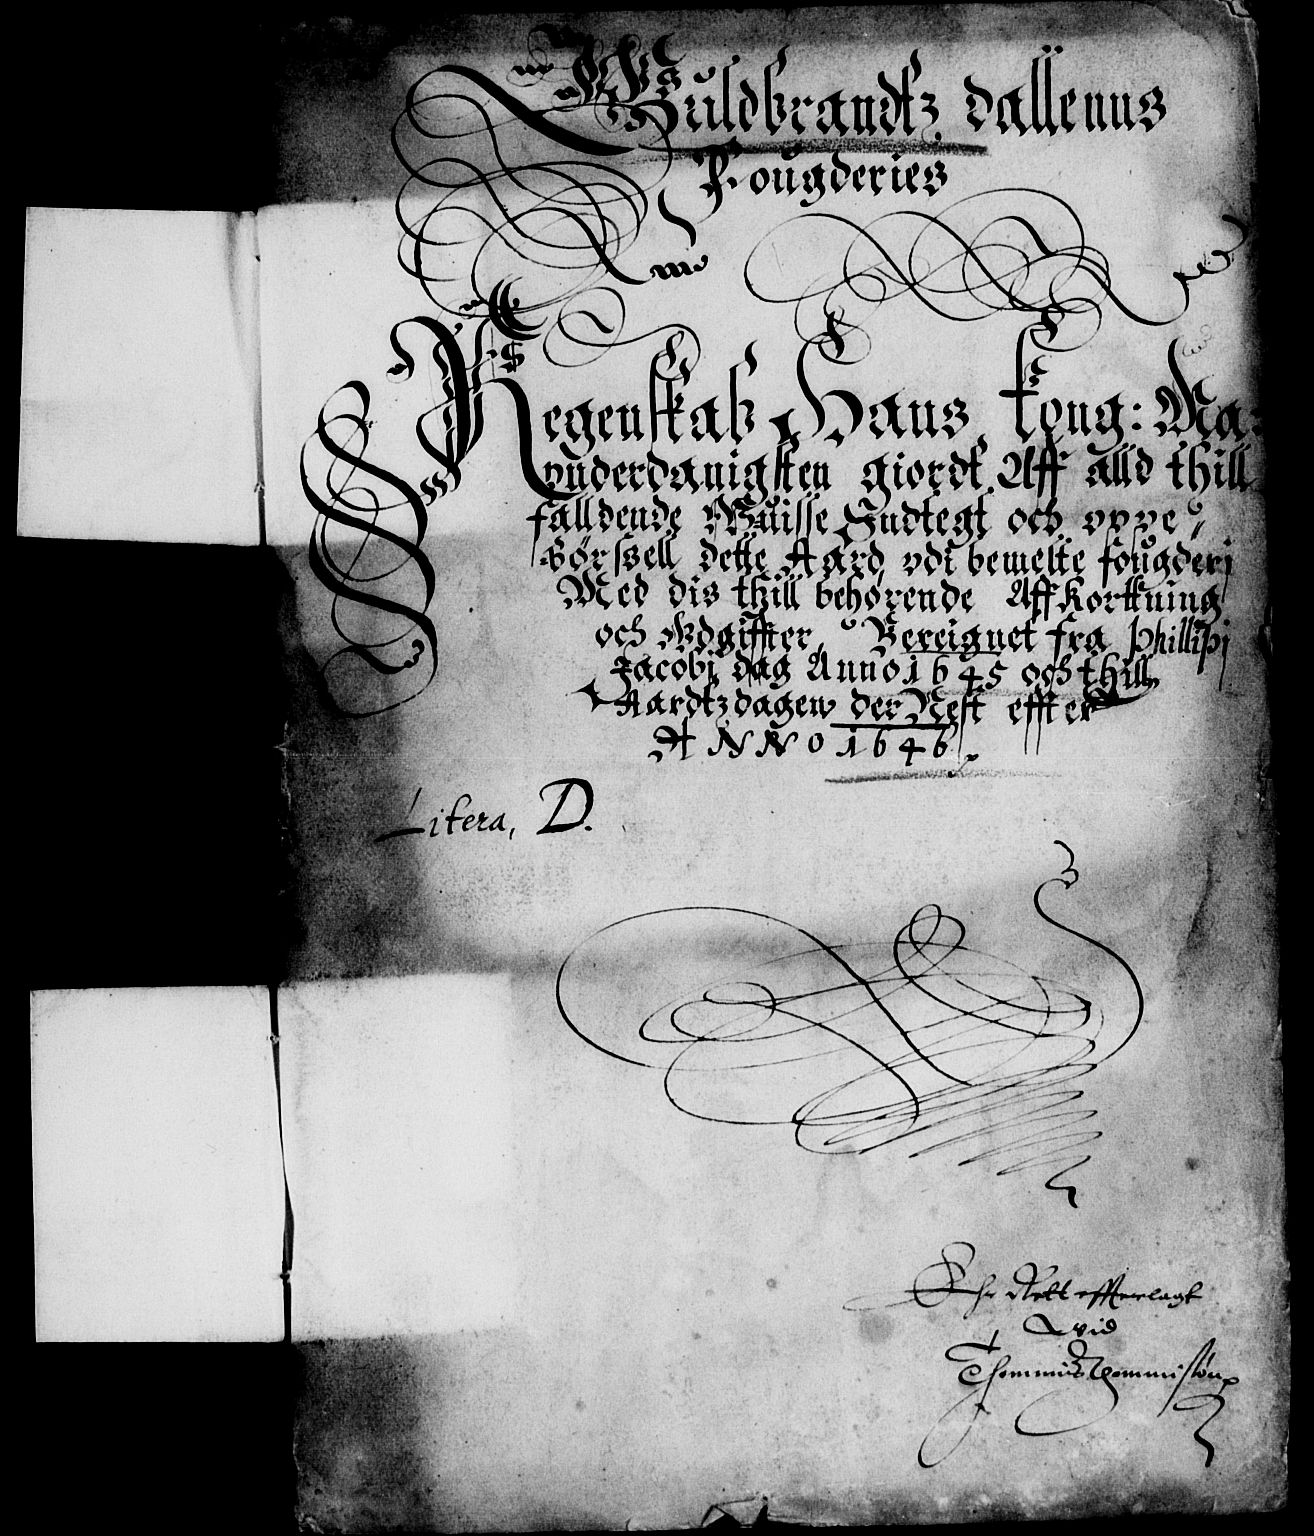 Guldbrandtz dallenns
Fougderies
Regenskab Hans Kong: Ma:
vnderdanigsten giordt Aff alld thill
falldende Wuisse Indtegt och oppe
Børssell dette Aard vdi bemelte fougderi
Med dis thill behørende Affkortning
och Vdgiffter, Bereignet fra Phillipi
Jacobi dag Anno 1645 och thill
Aardtzdagen der Nest effter
ANNO 1646
Litera, D.
Ehr Rett effterlagt
Thommis Thommissøn